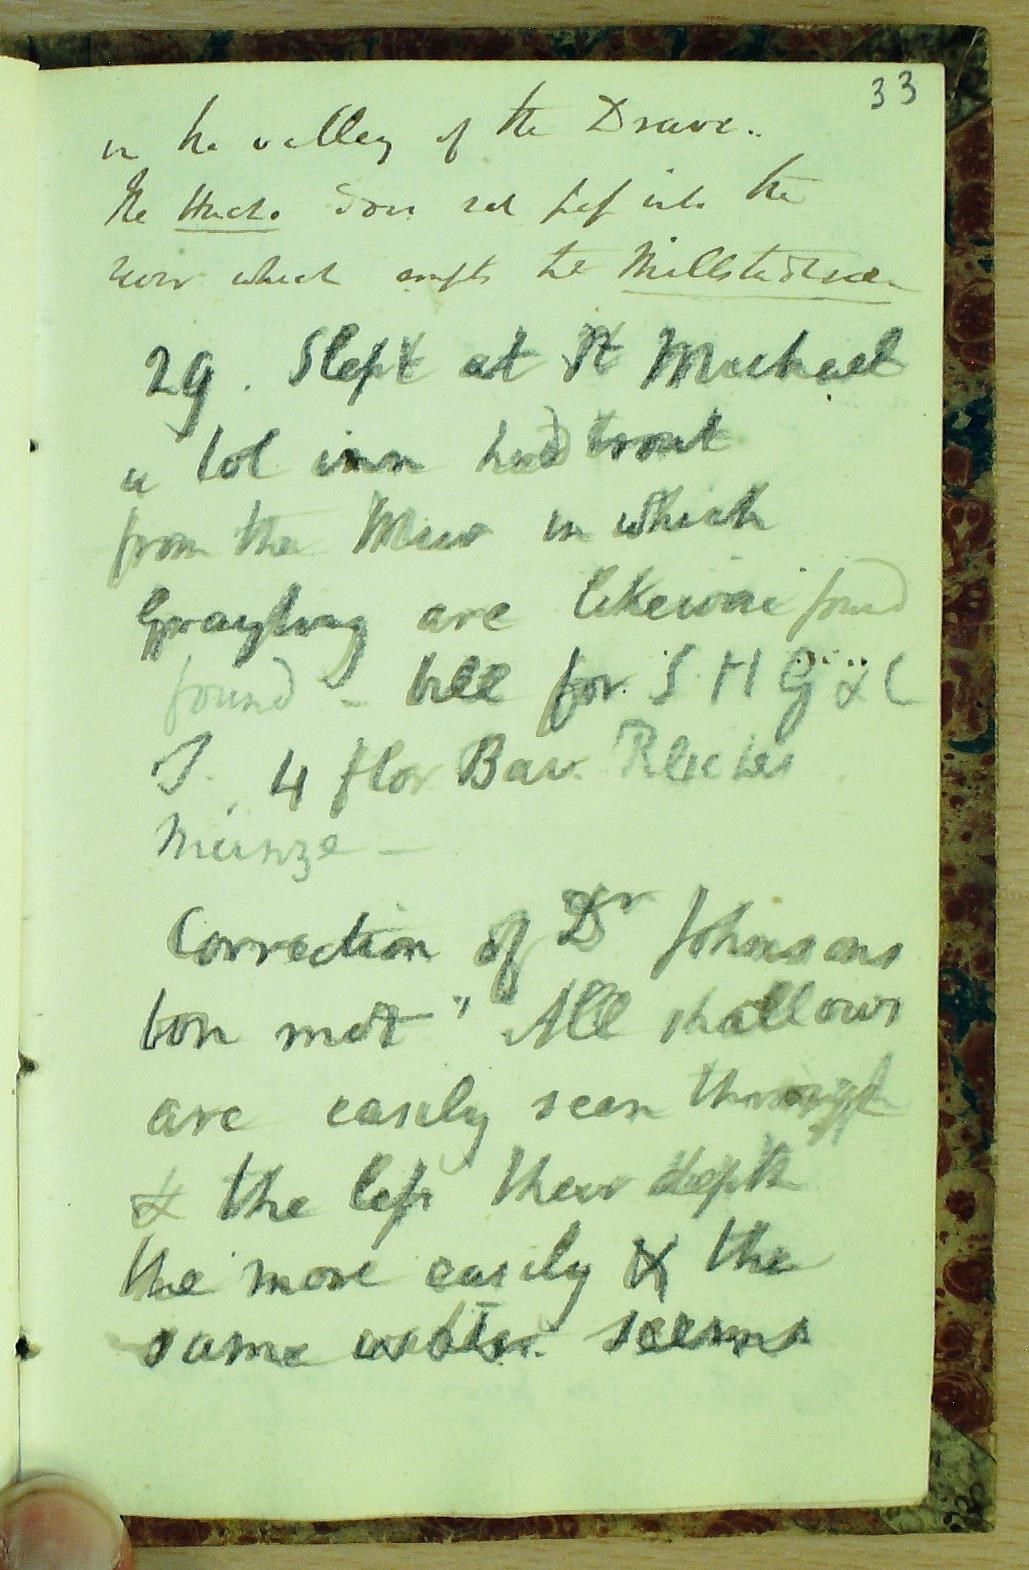 33
in the valley of the Drave..
The Hucho does not pass into the
river which empts the Millstadtsee
29. Slept at St Michael
a tol inn had trout
from the Muir in which
Grayling are likewise found
found - bill for S H G & C
J. 4 flor Bav. Reiches
Münze -
Correction of Dr Johnsons
bon mot " All shallows
are easily seen through
& the less their depth
the more easily & the
same water seems